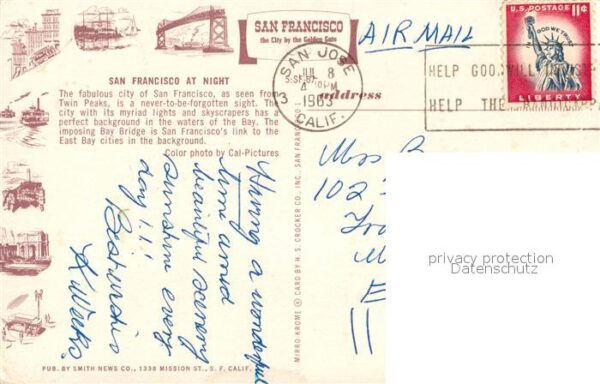 SAN FRANCISCO
the City by the Golden Gate
AIR MAIL
U.S. POSTAGE 11¢
IN GOD WE TRUST
LIBERTY
SAN JOSE
JUL 8
PM
1963
CALIF.
3
HELP GOODWILL
HELP THE HANDICAPPED
address
SAN FRANCISCO AT NIGHT
The fabulous city of San Francisco, as seen from
Twin Peaks, is a never-to-be-forgotten sight. The
city with its myriad lights and skyscrapers has a
perfect background in the waters of the Bay. The
imposing Bay Bridge is San Francisco's link to the
East Bay cities in the background.
Color photo by Cal-Pictures
Having a wonderful
time amid
beautiful scenery
sunshine every
day!!!
Best wishes
K Weeks.
Miss
102
MIRRO-KROME ® CARD BY H. S. CROCKER CO., INC. SAN FRANCISCO
PUB. BY SMITH NEWS CO., 1338 MISSION ST., S. F. CALIF.
privacy protection
Datenschutz